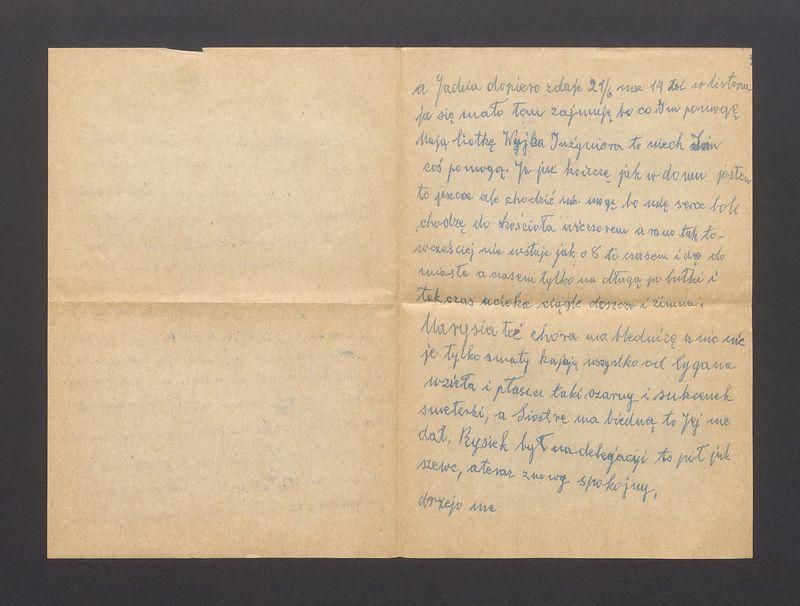 a Jadzia dopiero zdaje 21/6 ma 14 w listow
ja się mało tem zajmuję bo co Im pomogę
Mają ciotkę Wujka Inżyniera to niech Im
coś pomogą. Ja już kończę jak w domu jestem
to jeszcze ale chodzić nie mogę bo mię serce boli
chodzę do kościoła wieczorem a rano tak to
wcześniej nie wstaję jak o 8 to czasem idę do
miasta a czasem tylko na długą po bułki i
tak czas ucieka ciągle deszcze i zimno.
Marysia też chora ma blednicę a nic nie
je tylko smaty kupują wszystko od Cygana
wzieła i płaszcz taki czarny i sukienek
sweterki, a Siostrę ma biedną to Jej nie
dał, Rysiek był na delegacyji to pił jak
szewc, a teraz znowu spokojny,
drzejo na